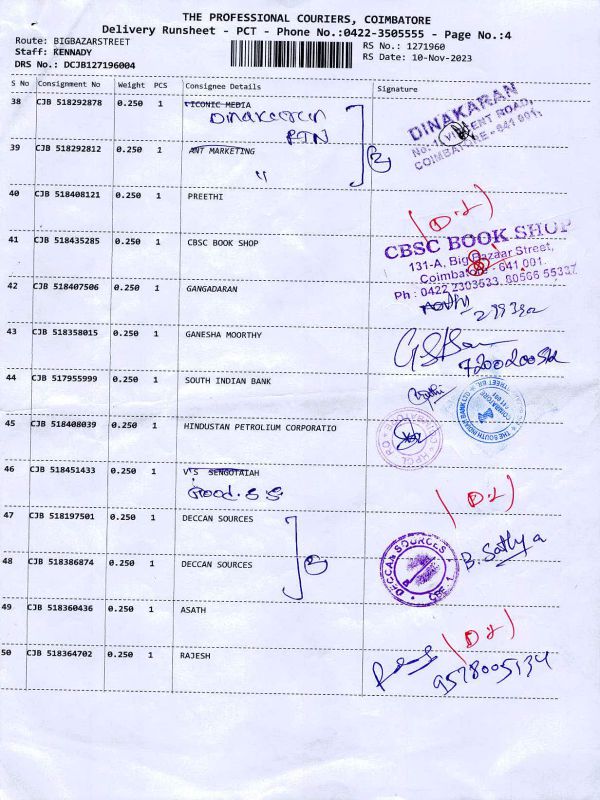 THE PROFESSIONAL COURIERS, COIMBATORE
Delivery Runsheet - PCT - Phone No.:0422-3505555 - Page No.:4
Route: BIGBAZARSTREET
RS No.: 1271960
Staff: KENNADY
RS Date: 10-Nov-2023
DRS No.: DCJB127196004
S No Consignment No Weight PCS Consignee Details Signature
38 CJB 518292878 0.250 1 ICONIC MEDIA
Dinakaran
DINAKARAN
COIMBATORE - 641 001.
39 CJB 518292812 0.250 1 ANT MARKETING
"
2
40 CJB 518408121 0.250 1 PREETHI
(D2)
41 CJB 518435285 0.250 1 CBSC BOOK SHOP
CBSC BOOK SHOP
131-A, Big Bazaar Street,
Coimbatore - 641 001.
Ph : 0422 2303533, 80566 55337
42 CJB 518407506 0.250 1 GANGADARAN
43 CJB 518358015 0.250 1 GANESHA MOORTHY
44 CJB 517955999 0.250 1 SOUTH INDIAN BANK
THE SOUTH INDIAN BANK LTD
COIMBATORE
45 CJB 518408039 0.250 1 HINDUSTAN PETROLIUM CORPORATIO
46 CJB 518451433 0.250 1 V S SENGOTAIAH
(D2)
47 CJB 518197501 0.250 1 DECCAN SOURCES
2
DECCAN SOURCES
CBE-1
B. Sathya
48 CJB 518386874 0.250 1 DECCAN SOURCES
49 CJB 518360436 0.250 1 ASATH
(D2)
50 CJB 518364702 0.250 1 RAJESH
9578005134